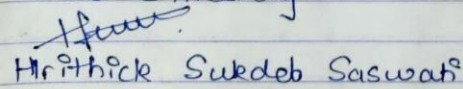 Hrithick Sukedeb Saswati